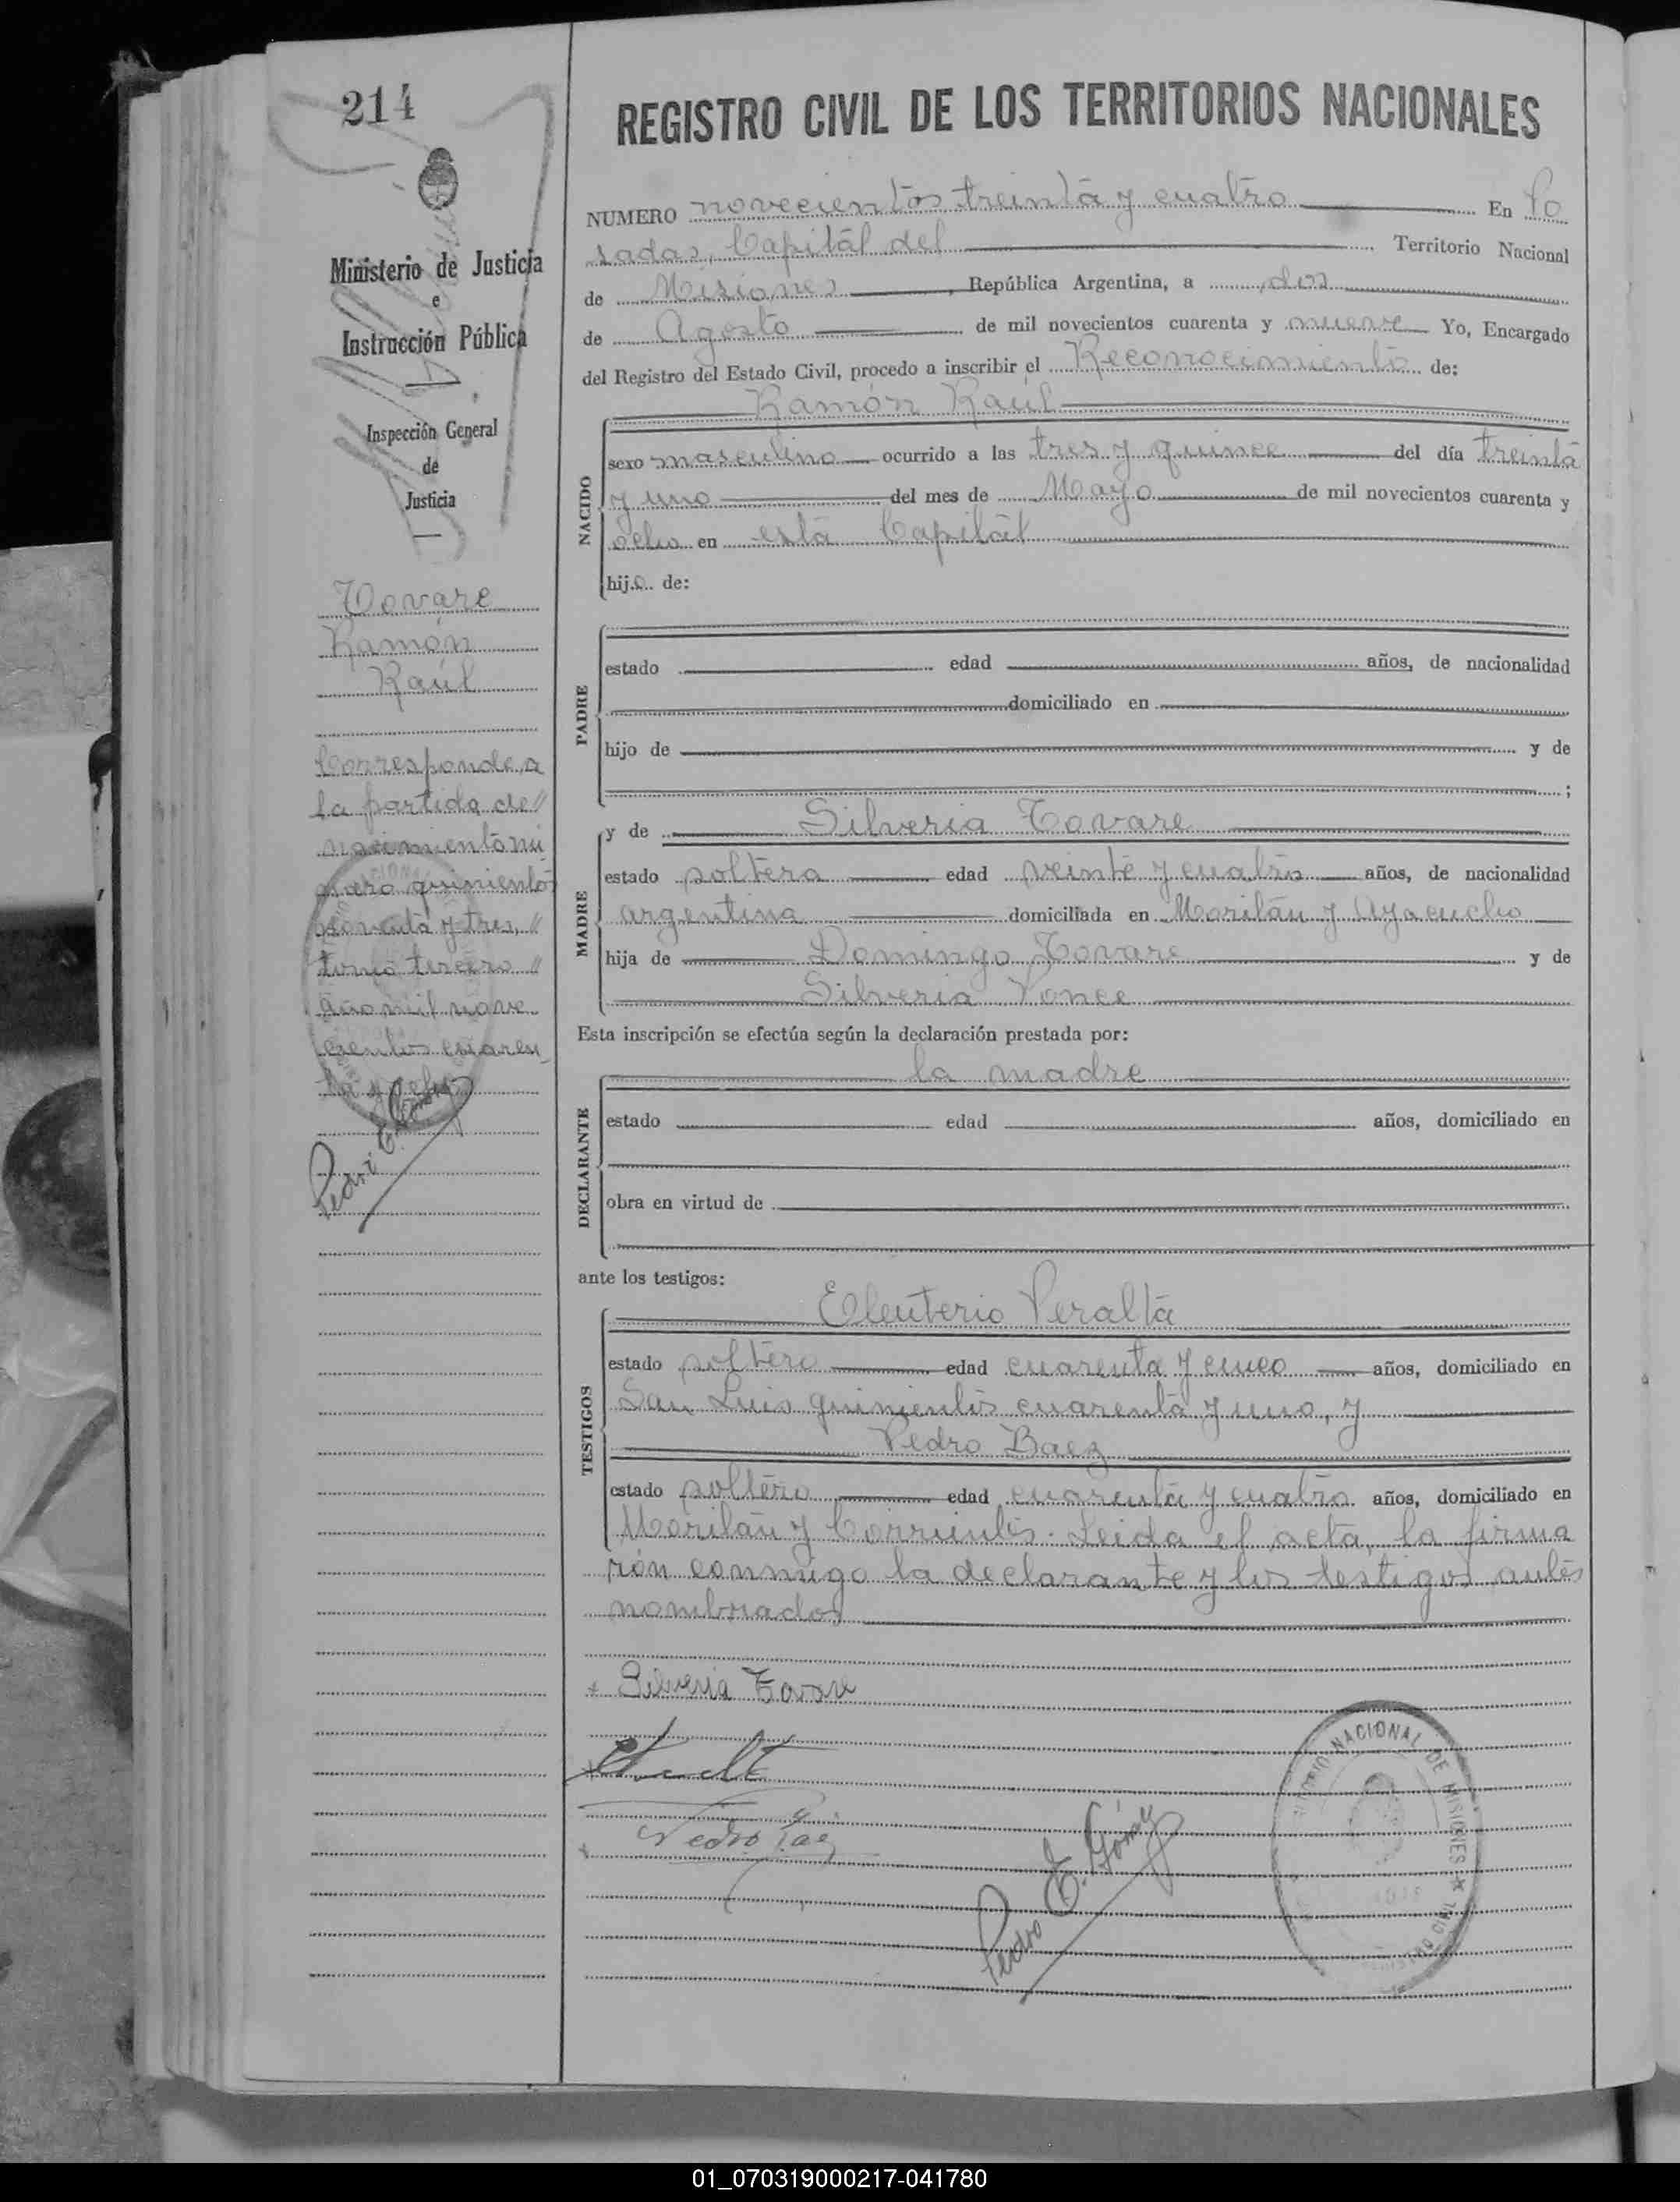 214
Ministerio de Justicia
e
Instrucción Pública
Inspección General
de
Justicia
Tovare
Ramón
Raúl
Corresponde a
la partida de//
nacimiento nú
mero quinientos
y tres, //
tomo tercero //
año mil nove
cientos cuaren
ta y ocho
Pedro E. Gómez
REGISTRO CIVIL DE LOS TERRITORIOS NACIONALES
NUMERO novecientos treinta y cuatro En Po
sadas, Capital del Territorio Nacional
de Misiones, República Argentina, a dos
de Agosto de mil novecientos cuarenta y nueve Yo, Encargado
del Registro del Estado Civil, procedo a inscribir el Reconocimiento de:
Ramón Raúl
NACIDO
sexo masculino ocurrido a las tres y quince del día treinta
y uno del mes de Mayo de mil novecientos cuarenta y
ocho en esta Capital
hijo de:
PADRE
estado edad años, de nacionalidad
domiciliado en
hijo de y de
;
MADRE
y de Silveria Tovare
estado soltera edad veinte y cuatro años, de nacionalidad
argentina domiciliada en Moritán y Ayacucho
hija de Domingo Tovare y de
Silveria Ponce
Esta inscripción se efectúa según la declaración prestada por:
la madre
DECLARANTE
estado edad años, domiciliado en
obra en virtud de
ante los testigos:
Eleuterio Peralta
TESTIGOS
estado soltero edad cuarenta y cinco años, domiciliado en
San Luis quinientos cuarenta y uno, y
Pedro Baez
estado soltero edad cuarenta y cuatro años, domiciliado en
Moritán y Corrientes. Leida el acta, la firma
rón conmigo la declarante y los testigos antes
nombrados
Silveria Tovare
Pedro Baez
Pedro E. Gómez
TERRITORIO NACIONAL DE MISIONES ★ REGISTRO CIVIL
01_070319000217-041780